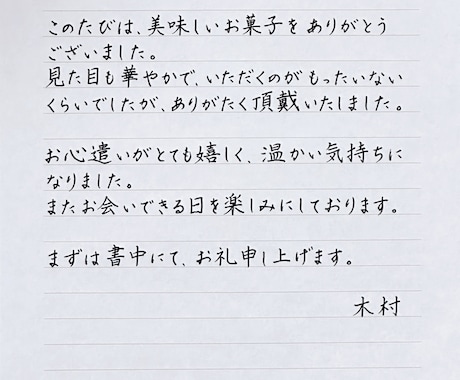 このたびは、美味しいお菓子をありがとう
ございました。
見た目も華やかで、いただくのがもったいない
くらいでしたが、ありがたく頂戴いたしました。
お心遣いがとても嬉しく、温かい気持ちに
なりました。
またお会いできる日を楽しみにしております。
まずは書中にて、お礼申し上げます。
木村